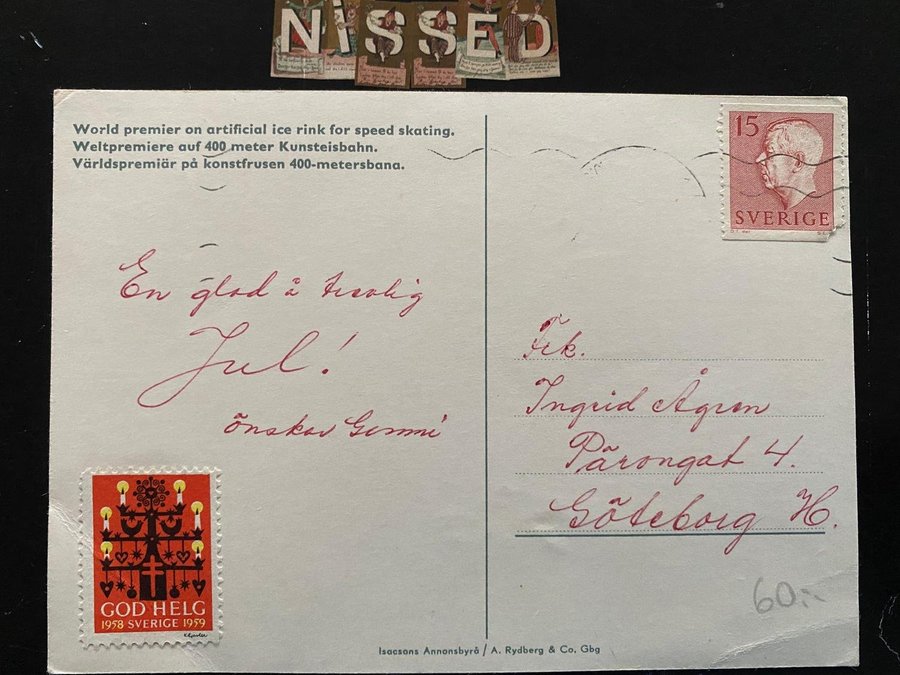 NISSED
World premier on artificial ice rink for speed skating.
Weltpremiere auf 400 meter Kunsteisbahn.
Världspremiär på konstfrusen 400-metersbana.
15
SVERIGE
En glad å trevlig
Jul!
önskar Gemmi
Frk.
Ingrid Ågren
Pärongat 4.
Göteborg H.
GOD HELG
1958 SVERIGE 1959
60:-
Isacsons Annonsbyrå / A. Rydberg & Co. Gbg